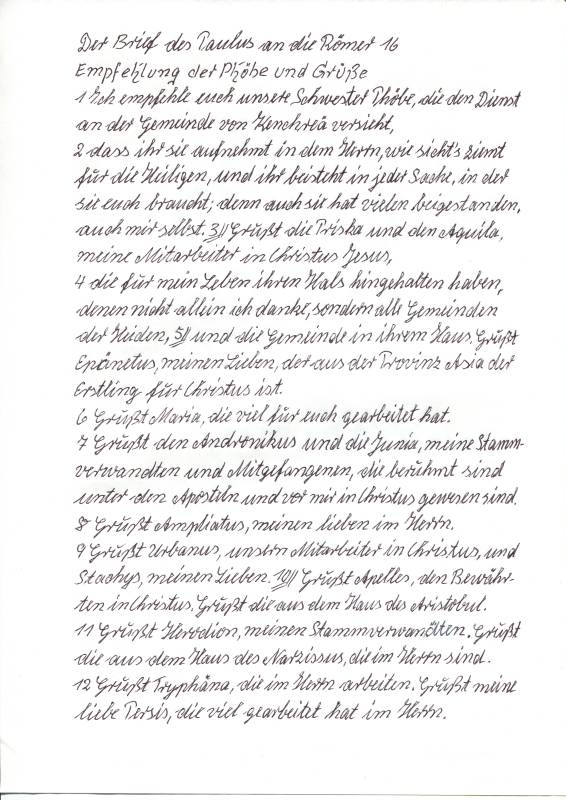 Der Brief des Paulus an die Römer 16
Empfehlung der Phöbe und Grüße
1 Ich empfehle euch unsere Schwester Phöbe, die den Dienst
an der Gemeinde von Kenchreä versieht,
2 dass ihr sie aufnehmt in dem Herrn, wie sicht's ziemt
für die Heiligen, und ihr beisteht in jeder Sache, in der
sie euch braucht; denn auch sie hat vielen beigestanden,
auch mir selbst. 3// Grüßt die Priska und den Aquila,
meine Mitarbeiter in Christus Jesus,
4 die für mein Leben ihren Hals hingehalten haben,
denen nicht allein ich danke, sondern alle Gemeinden
der Heiden, 5// und die Gemeinde in ihrem Haus. Grüßt
Epänetus, meinen Lieben, der aus der Provinz Asia der
Erstling für Christus ist.
6 Grüßt Maria, die viel für euch gearbeitet hat.
7 Grüßt den Andronikus und die Junia, meine Stamm-
verwandten und Mitgefangenen, die berühmt sind
unter den Aposteln und vor mir in Christus gewesen sind.
8 Grüßt Ampliatus, meinen lieben im Herrn.
9 Grüßt Urbanus, unsern Mitarbeiter in Christus, und
Stachys, meinen Lieben. 10// Grüßt Apelles, den Bewähr-
ten in Christus. Grüßt die aus dem Haus des Aristobul.
11 Grüßt Herodion, meinen Stammverwandten. Grüßt
die aus dem Haus des Narzissus, die im Herrn sind.
12 Grüßt Tryphäna, die im Herrn arbeiten. Grüßt meine
liebe Persis, die viel gearbeitet hat im Herrn.